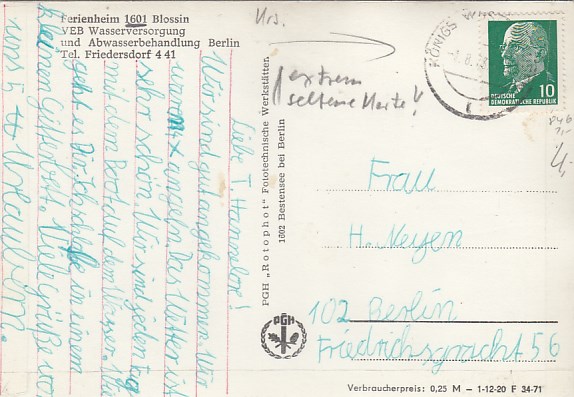 Ferienheim 1601 Blossin
VEB Wasserversorgung
und Abwasserbehandlung Berlin
Tel. Friedersdorf 4 41
Liebe T. Hannelore!
Wir sind gut angekommen. Wir
Das Wetter ist
sehr schön. Wir sind jeden Tag
mit dem Boot auf dem Wasser. Wie
geht es Dir. Ich schlafe in einem
kleinen Viele Grüße von
uns 5 Urlaubern.
PGH „Rotophot" Fototechnische Werkstätten
1602 Bestensee bei Berlin
PGH
extrem
seltene Karte!
KÖNIGS
10
DEUTSCHE
DEMOKRATISCHE REPUBLIK
4,-
Frau
H. Neyen
102 Berlin
Friedrichsgracht 56
Verbraucherpreis: 0,25 M – 1-12-20 F 34-71